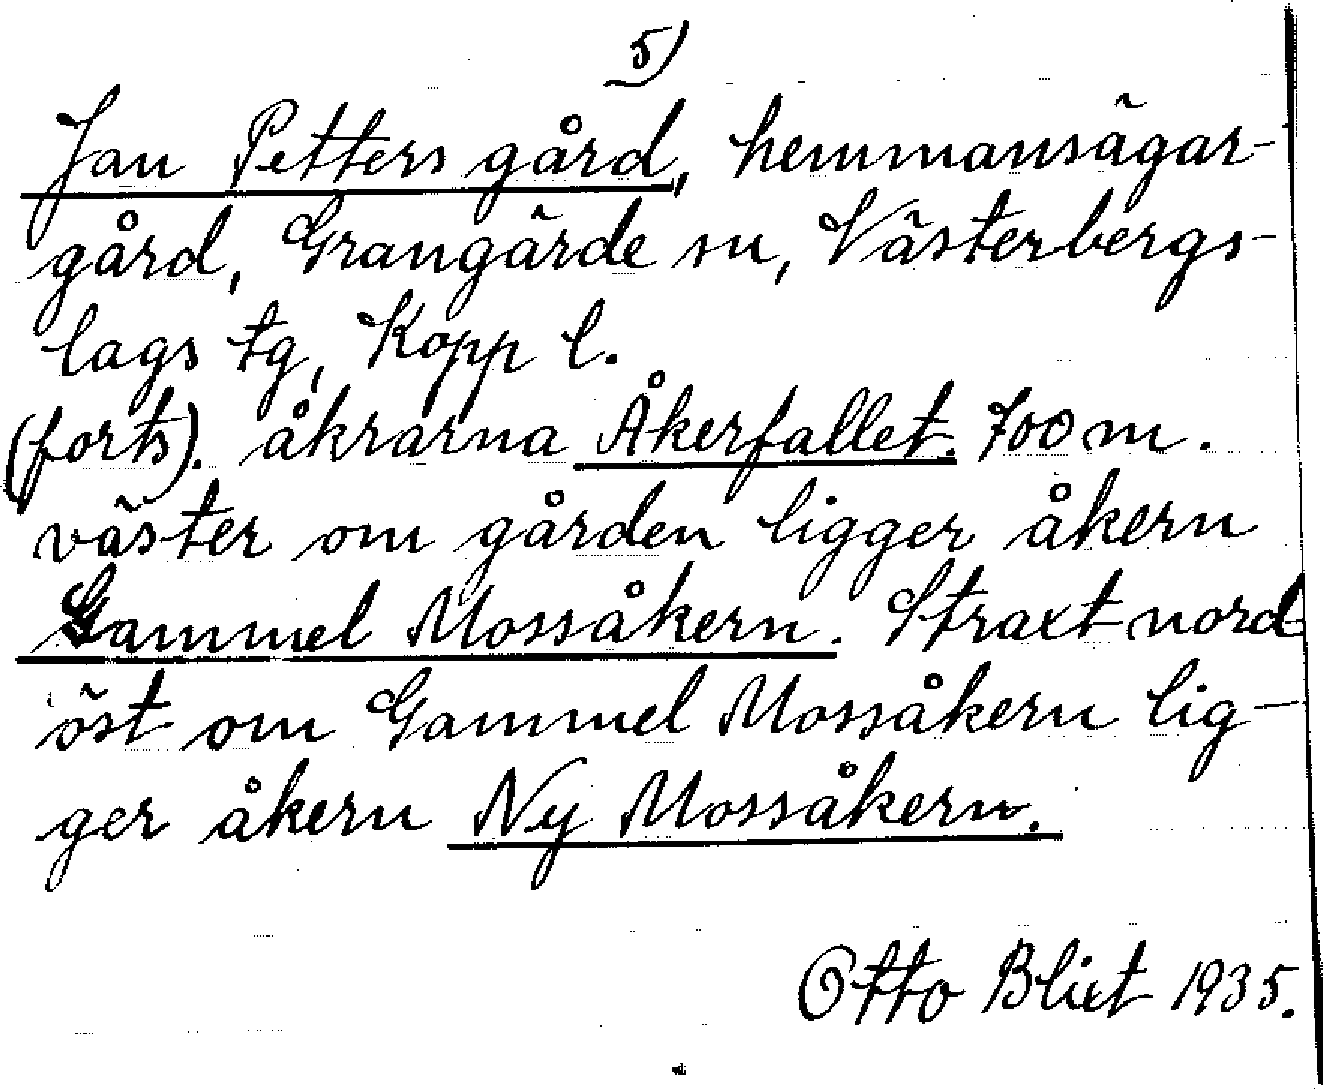 5)
Jan Petters gård, hemmansägar-
gård, Grangärde sn, Västerbergs-
lags tg, Kopp l.
(forts). åkrarna Åkerfallet. 700 m.
väster om gården ligger åkern
Gammel Mossåkern. Straxt nord
öst om Gammel Mossåkern lig-
ger åkern Ny Mossåkern.
Otto Blixt 1935.